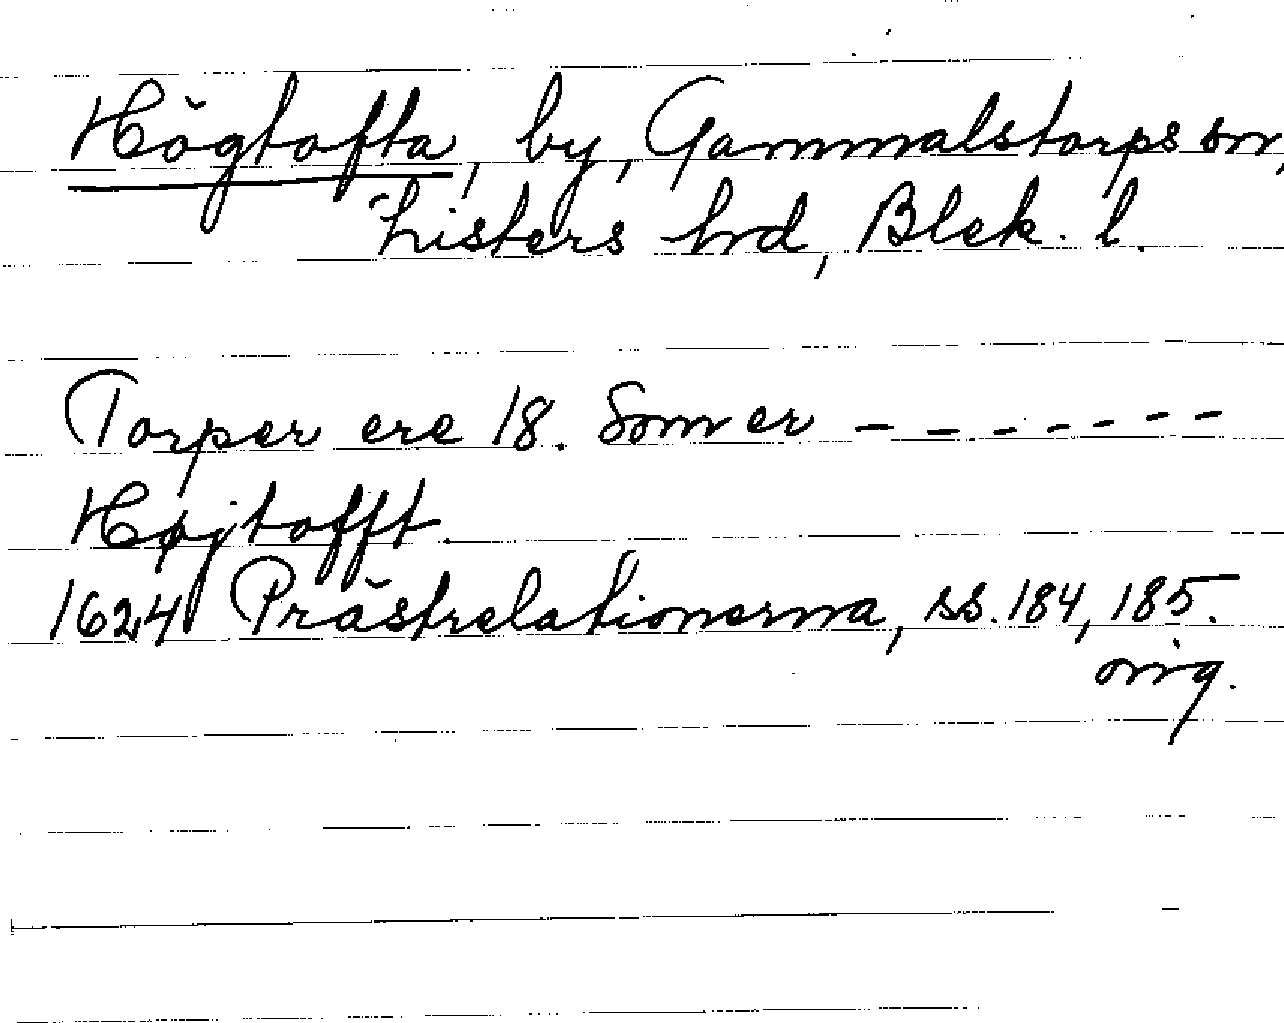 Högtofta, by, Gammalstorps sn,
Listers hrd, Blek. l.
Torper ere 18. Som er - - - - - - -
Højtofft.
1624 Prästrelationerna, ss. 184, 185.
orig.